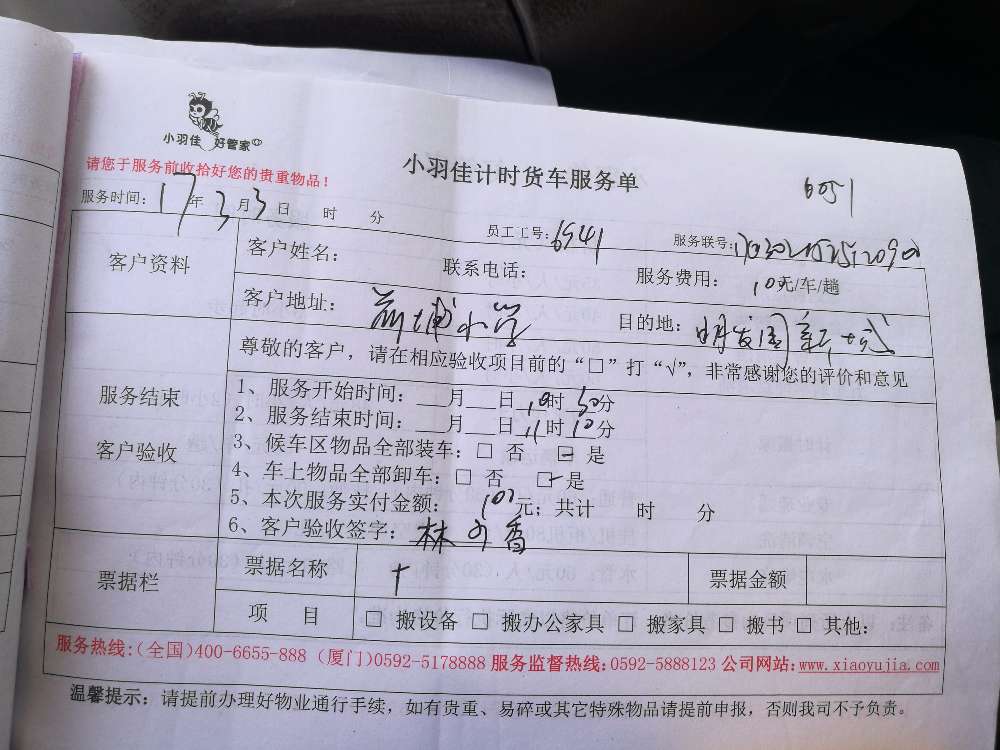 小羽佳 好管家
小羽佳计时货车服务单
6051
请您于服务前收拾好您的贵重物品！
服务时间：17年3月3日 时 分
员工工号：6941
服务联号：
客户资料
客户姓名：
联系电话：
服务费用：100元/车/趟
客户地址：埔小学
目的地：明发园新
服务结束
客户验收
尊敬的客户，请在相应验收项目前的“□”打“√”，非常感谢您的评价和意见
1、服务开始时间：___月___日10时50分
2、服务结束时间：___月___日11时10分
3、候车区物品全部装车：□ 否 □ 是
4、车上物品全部卸车：□ 否 □ 是
5、本次服务实付金额：100元；共计 时 分
6、客户验收签字：林香
票据栏
票据名称
票据金额
项 目
□ 搬设备 □ 搬办公家具 □ 搬家具 □ 搬书 □ 其他：
服务热线:(全国)400-6655-888 (厦门)0592-5178888 服务监督热线:0592-5888123 公司网站:www.xiaoyujia.com
温馨提示：请提前办理好物业通行手续，如有贵重、易碎或其它特殊物品请提前申报，否则我司不予负责。